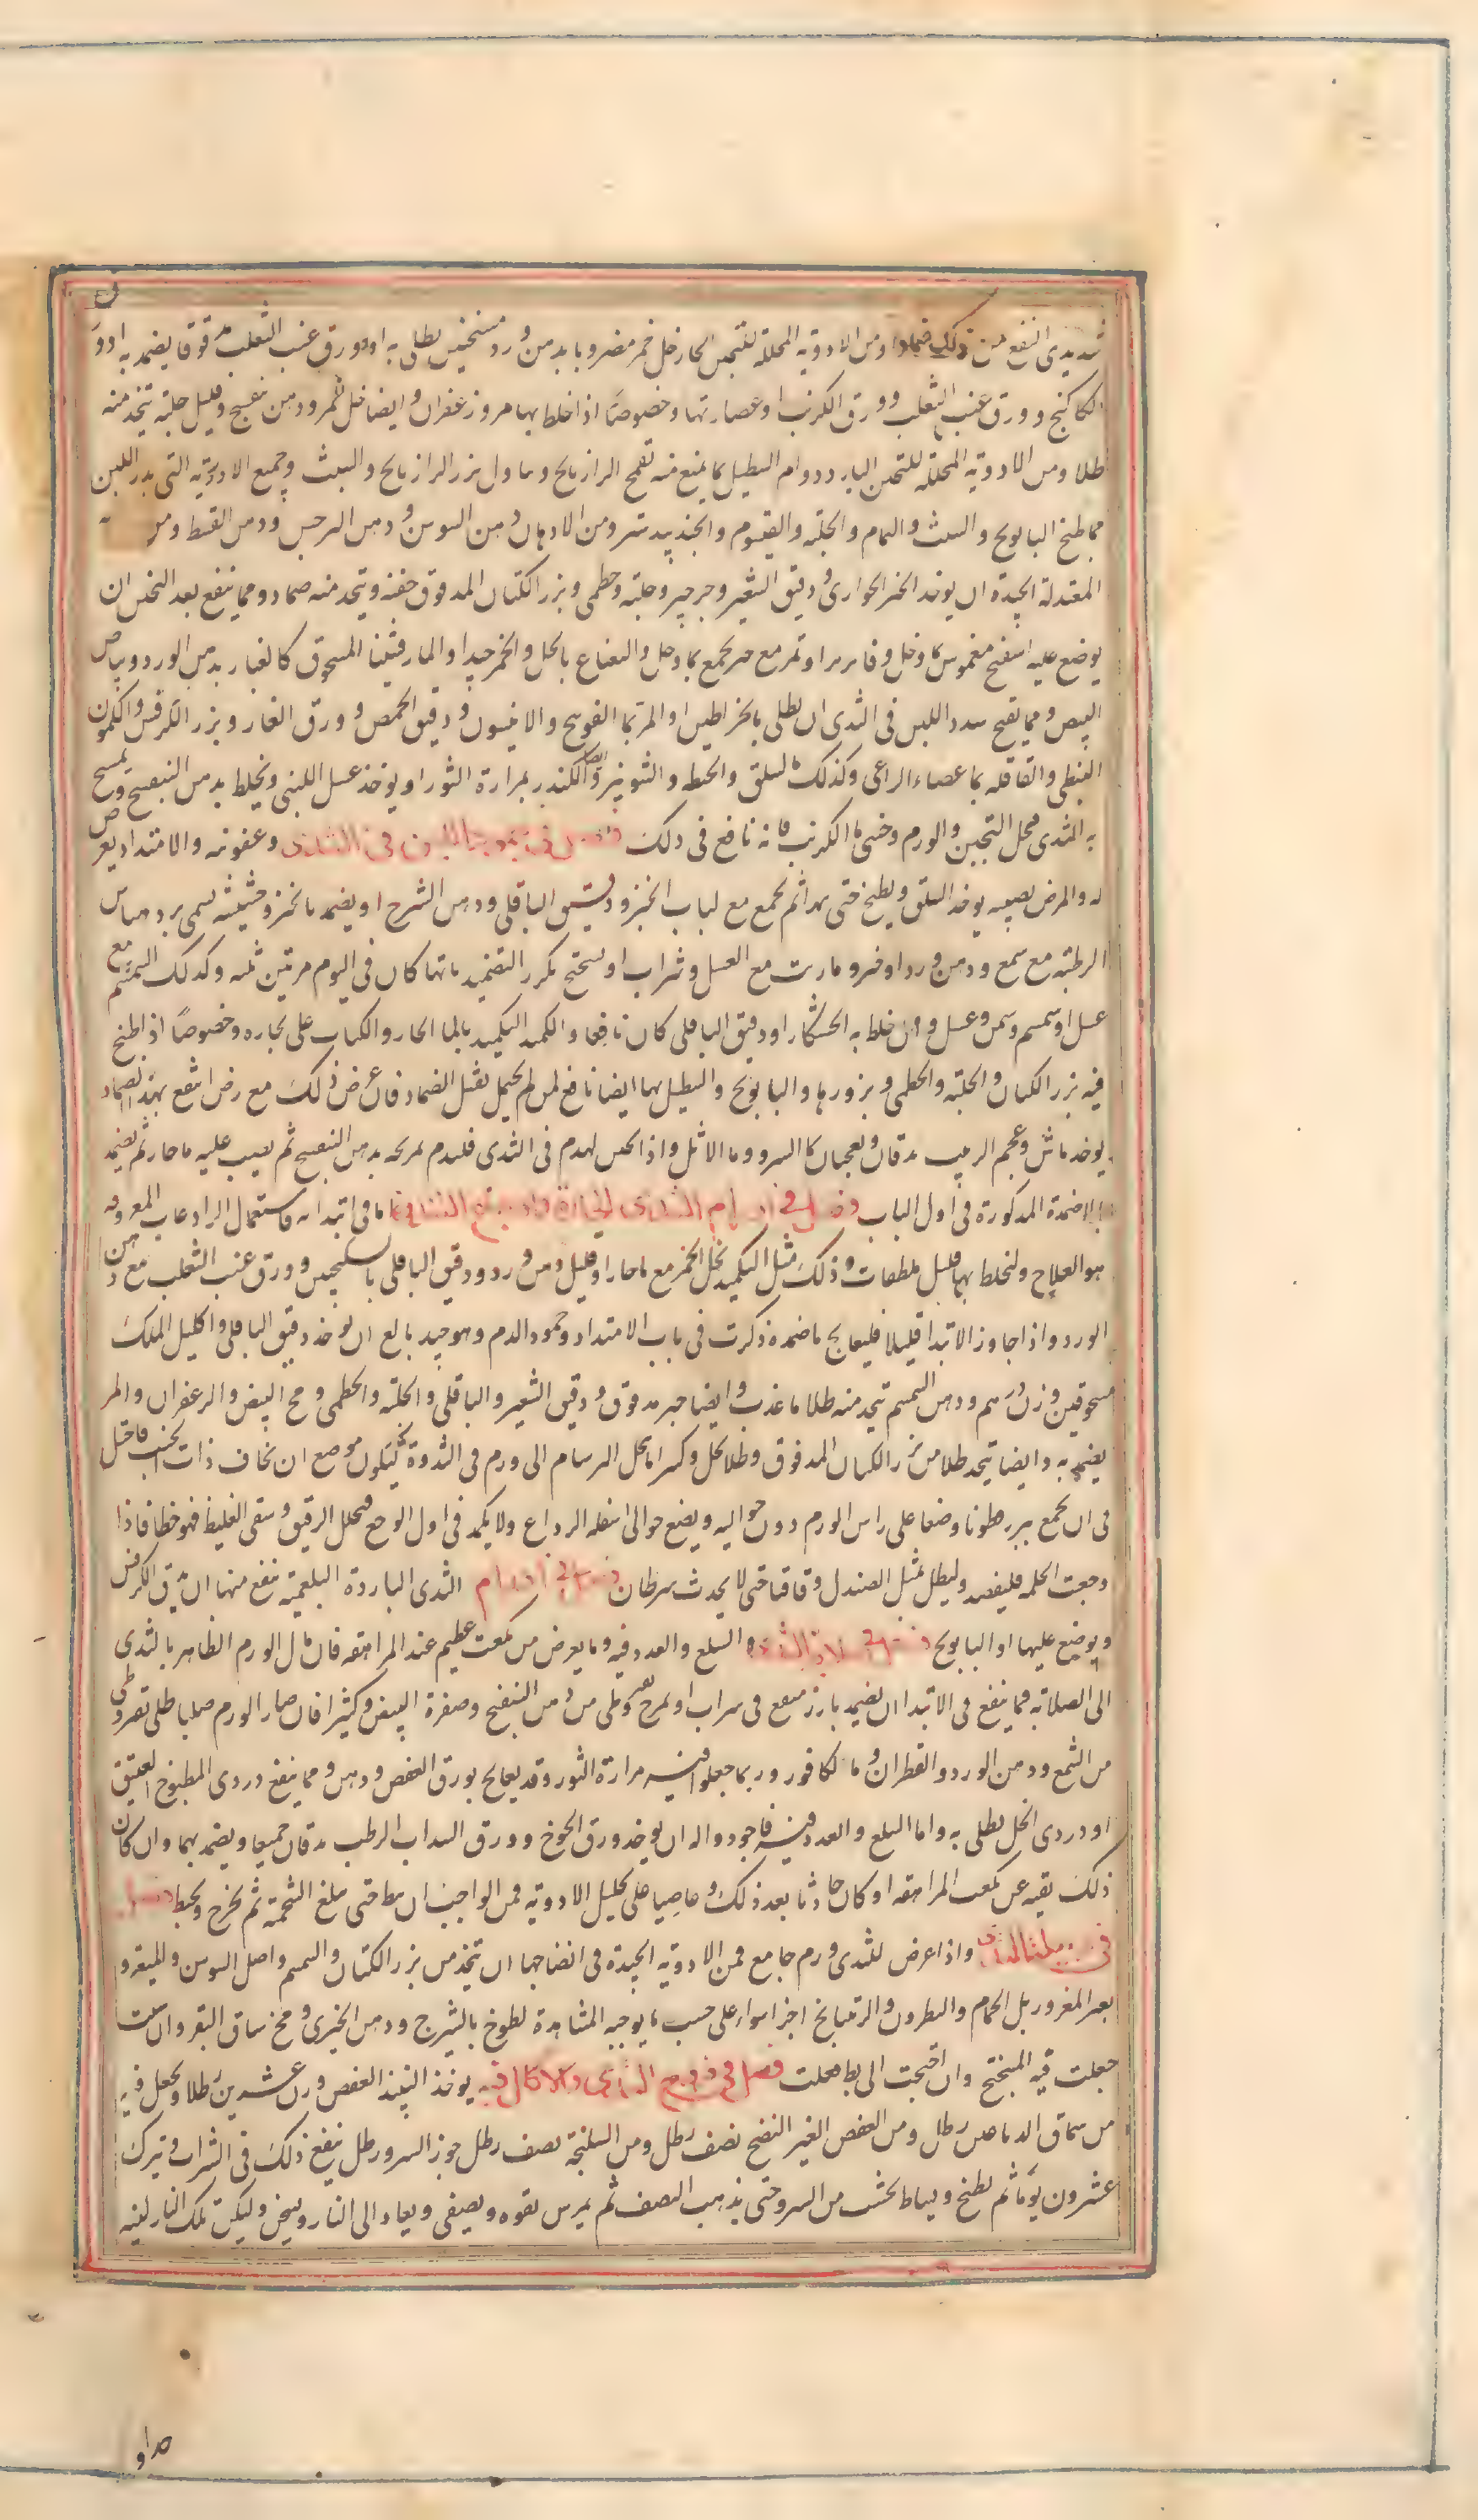 شديدى النفع من ذلك ضمادا ومن الادوية المحللة للتجبن الحار خل خمر مضروبا بدهن ورد مسخنين يطلى به او ورق عنب الثعلب مدقوقا يضمد به او ورق
الكاكنج وورق عنب الثعلب وورق الكرنب او عصارتها وخصوصا اذا خلط بها مر وزعفران وايضا خل خمر ودهن بنفسج وقليل حلبة يتخذ منه
طلا ومن الادوية المحللة للتجبن البارد دوام التنطيل بما يمنع منه تقمح الرازيانج وتناول بزر الرازيانج والشبث وجميع الادوية التى تدر اللبن
مما طبخ البابونج والشبث والنمام والحلبة والقيسوم والجندبيدستر ومن الادهان دهن السوسن ودهن النرجس ودهن القسط ومن
المعتدلة الجيدة ان يوخذ الخبز الحوارى ودقيق الشعير وجرجير وحلبة وخطمى وبزر الكتان المدقوق حفنة ويتخذ منه ضماد ومما ينفع بعد التخبن ان
يوضع عليه اسفنج مغموس بما وخل فاتر او تمر مع خبز يجمع بما وخل والنعناع بالخل والخمر جيد او المارقشيثا المسحوق كالغبار بدهن الورد وبياض
البيض ومما يفتح سدد اللبن فى الثدى ان يطلى بالخراطين او المر بما الفوتنج والانيسون ودقيق الحمص وورق الغار وبزر الكرفس والكمون
النبطى والقاقلة بما عصاء الراعى وكذلك السلق والحنطة والشونيز وايضا الكندر بمرارة الثور او يوخذ عسل اللبنى ويخلط بدهن البنفسج وتمسح
به الثدى فيحل التجبين والورم وحشى ما الكرنب فانه نافع فى ذلك فصل فى جمود اللبن فى الثدى وعفونته والامتداد يعرض
له والمرض يصيبه يوخذ السلق ويطبخ حتى يهرا ثم يجمع مع لباب الخبز ودقيق الباقلى ودهن الشيرج او يضمد بالخبز وحشيشة تسمى
الرطبة مع شمع ودهن ورد او خبز وما وزيت مع العسل وشراب او ميبختج يكرر التضميد بايها كان فى اليوم مرتين ثلثة وكذلك السمسم مع
عسل او سمسم وسمن وعسل وان خلط به الخشكار او دقيق الباقلى كان نافعا والكمد التكميد بالما الحار والكباب على بخاره وخصوصا اذ اطبخ
فيه بزر الكتان والحلبة والخطمى وبزورها والبابونج والتنطيل بها ايضا نافع لمن لم يحتمل ثقل الضماد فان عرض ذلك مع رض انتفع بهذا الضماد
يوخذ ماش وعجم الزبيب يدقان ويعجنان بما السرو وما الاثل واذا احس بدم فى الثدى فليدم تمريخه بدهن البنفسج ثم يصب عليه ما حار ثم يضمد
بالاضمدة المذكورة فى اول الباب فصل فى اورام الثدى الحارة واوجاع الثندوة اما فى ابتدائه فاستعمال الرادعات المعروفة
هو العلاج ولتخلط بها قليل ملطفات وذلك مثل التكميد بخل الخمر مع ما حار او قليل دهن ورد ودقيق الباقلى بالسكنجبين وورق عنب الثعلب مع دهن
الورد واذا جاوز الابتدا قليلا فليعالج باضمدة ذكرت فى باب الامتداد وجمود الدم وهو جيد بالغ ان يوخذ دقيق الباقلى واكليل الملك
مسحوقين وزن درهم ودهن السمسم يتخذ منه طلا بما عذب وايضا خبز مدقوق ودقيق الشعير والباقلى والحلبة والخطمى ومح البيض والزعفران والمر
يضمد به وايضا يتخذ طلا من بزر الكتان المدقوق وطلا بخل وكثيرا ما ينحل البرسام الى ورم فى الثندوة فيكون موضع ان يخاف ذات الجنب فاحتل
فى ان يجمع ببزر قطونا وضعا على راس الورم دون حواليه ويضع حوالى اسفله الرداع ولا يكمد فى اول الوجع فيحلل الرقيق ويبقى الغليظ فهو خطا فاذا
وجعت الحلمة فليفصد وليطل بمثل الصندل وقاقيا حتى لا يحدث سرطان فصل فى اورام الثدى الباردة البلغمية ينفع منها ان يدق الكرفس
ويوضع عليها او البابونج فصل فى صلابة الثدى والسلع والغدد فيه وما يعرض من تكعب عظيم عند المراهقة فان مال الورم الظاهر بالثدى
الى الصلابة فمما ينفع فى الابتدا ان يضمد بارز منقع فى شراب او يمرخ بقيروطى من دهن البنفسج وصفرة البيض وكثيرا فان صار الورم صلبا طلى بقيروطى
من الشمع ودهن الورد والقطران وما الكافور وربما جعلوا فيه مرارة الثور وقد يعالج بورق العفص ودهن ومما ينفع دردى المطبوخ العتيق
او دردى الخل يطلى به واما السلع والغدد فيه فاجود دوا له ان يوخذ ورق الخوخ وورق السداب الرطب يدقان جميعا ويضمد بهما وان كان
ذلك بقية عن تكعب المراهقة او كان حادثا بعد ذلك وعاصيا على تحليل الادوية فمن الواجب ان يبط حتى يبلغ الشحمة ثم يخرج ويخيط فصل
فى دبيلة الثدى واذا عرض للثدى ورم جامع فمن الادوية الجيدة فى انضاجها ان يتخذ من بزر الكتان والسمسم واصل السوسن والميعة و
بعر المعز وزبل الحمام والنطرون والريتيانج اجزا سواء على حسب ما يوجبه المشاهدة لطوخ بالشيرج ودهن الخيرى ومخ ساق البقر وان شئت
جعلت فيه المبختج وان احتجت الى بط فعلت فصل فى قروح الثدى والاكال فيه يوخذ النبيذ العفص وزن عشرين رطلا ويجعل فيه
من سماق الدباغين رطل ومن العفص الغير النضج نصف رطل ومن السليخة نصف رطل جوز السرو رطل ينقع ذلك فى الشراب ويترك
عشرون يوما ثم يطبخ ويساط بخشب من السرو حتى يذهب النصف ثم يمرس بقوة ويصفى ويعاد الى النار ويسخن وليكن تلك النار لينة